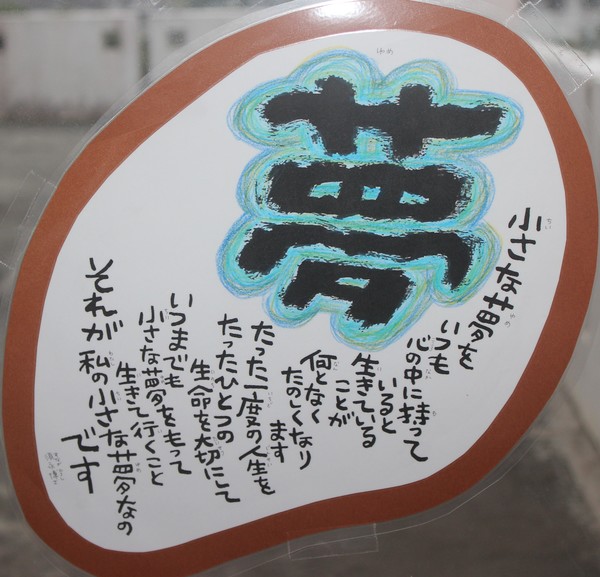 夢
ゆめ
小さな夢を
いつも
心の中に持って
いると
生きている
ことが
何となく
たのしくなり
ます
たった一度の人生を
たったひとつの
生命を大切にして
いつまでも
小さな夢をもって
生きて行くこと
それが私の小さな夢なの
です